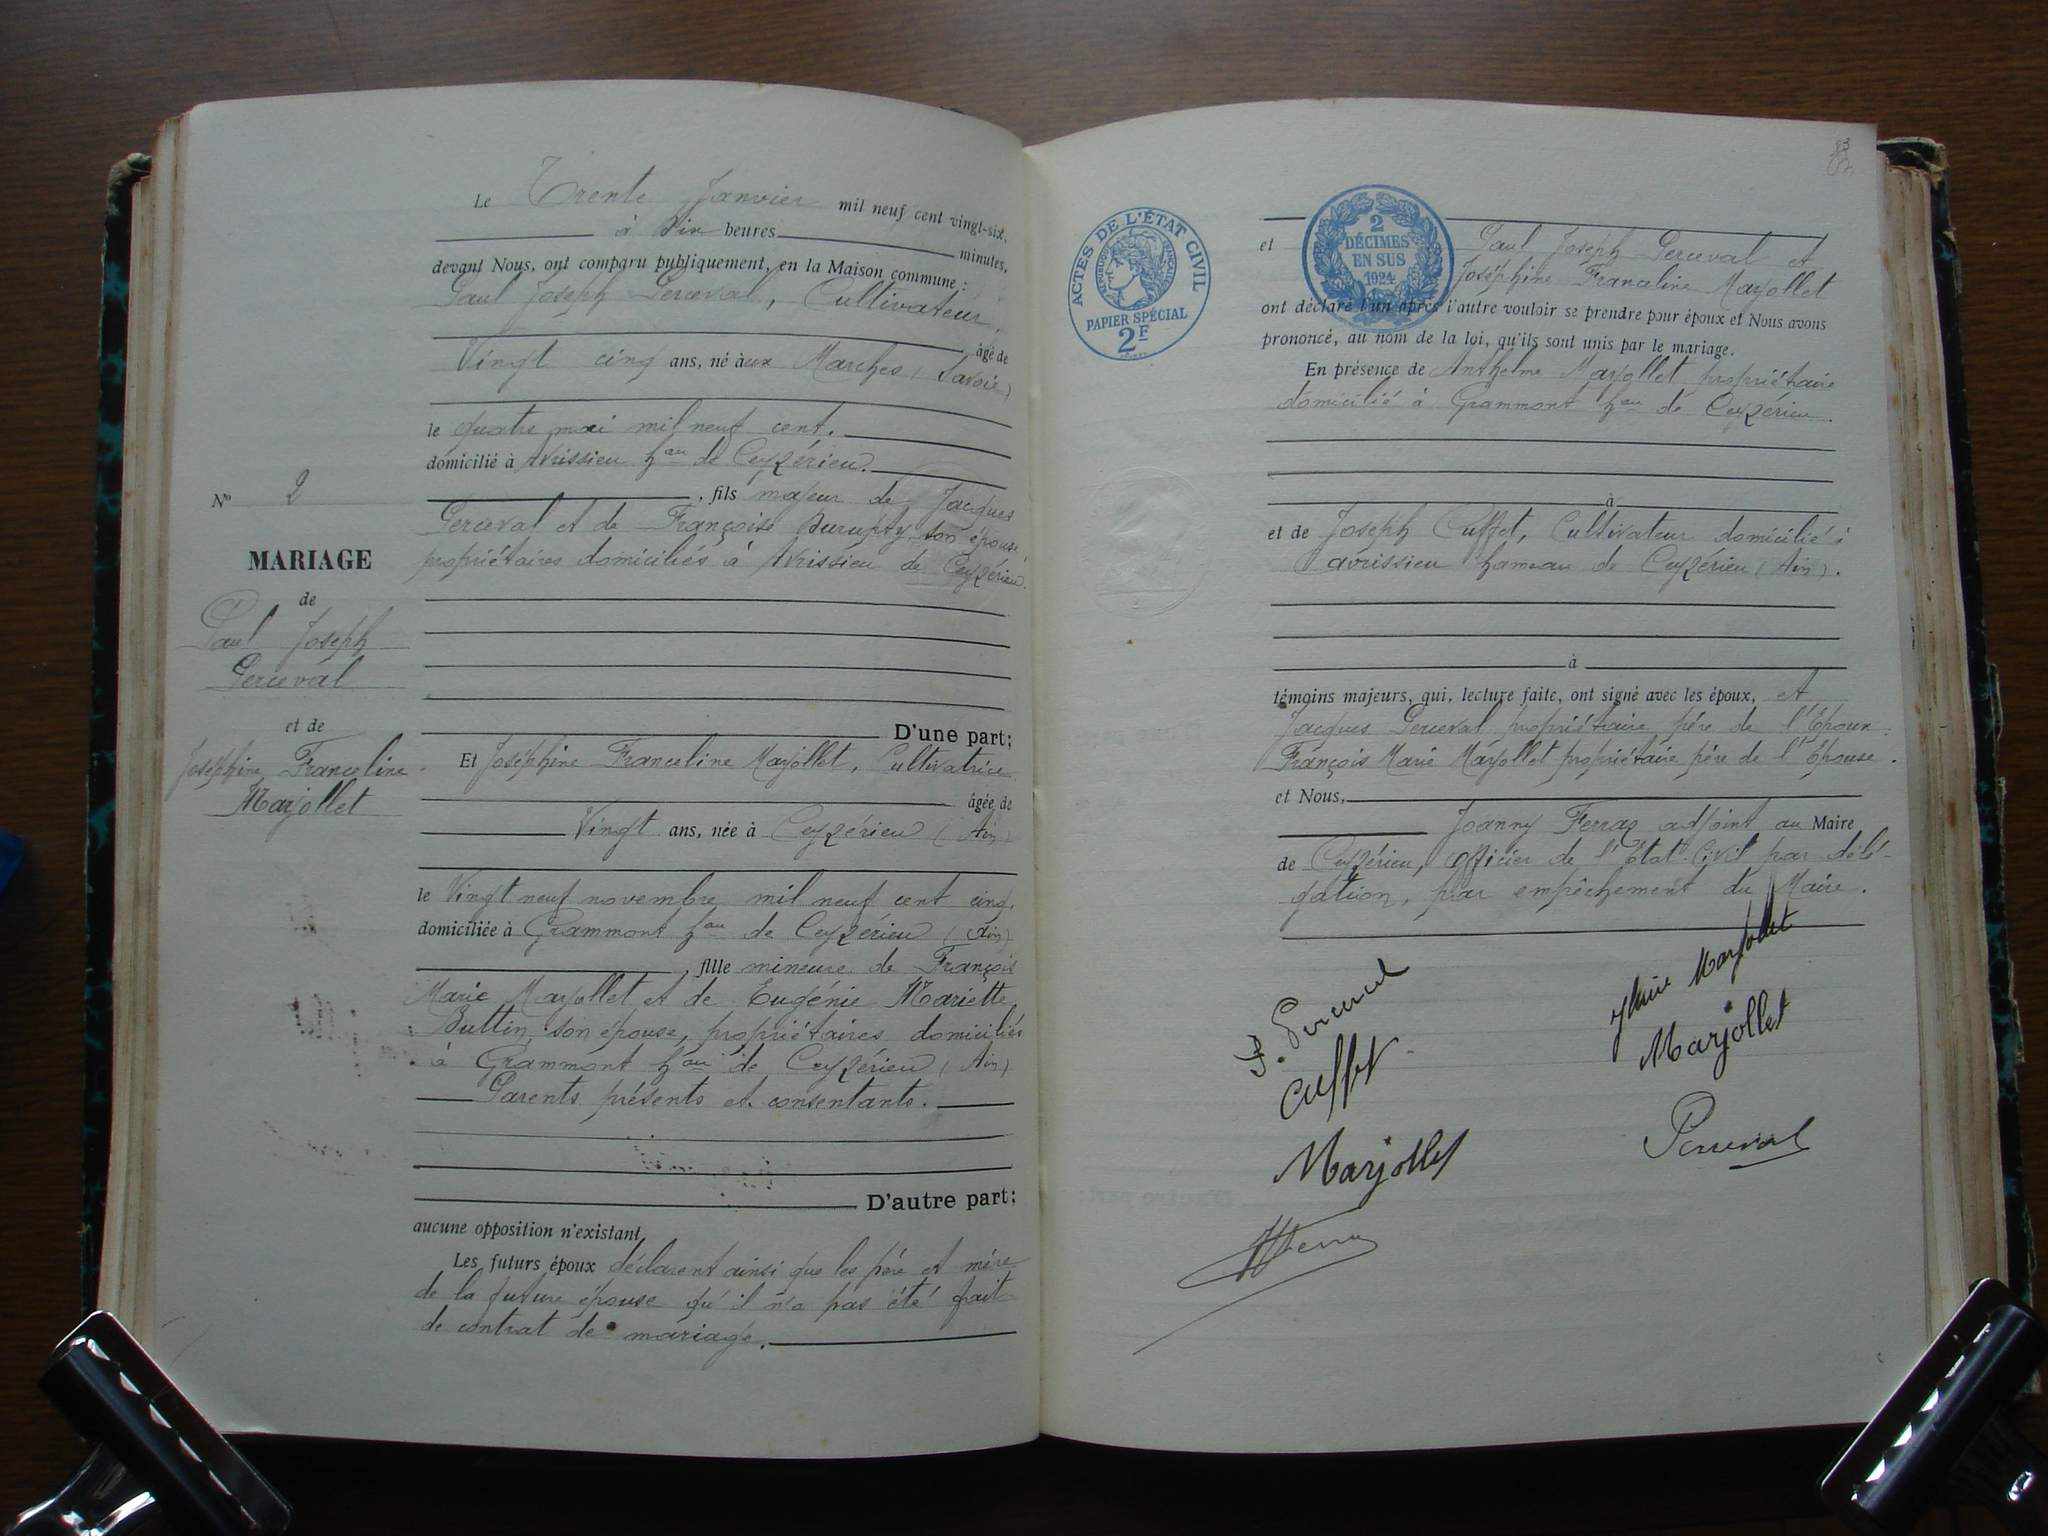 Le Trente Janvier mil neuf cent vingt-six,
à Dix heures minutes,
devant Nous, ont comparu publiquement, en la Maison commune :
Paul Joseph Perceval, Cultivateur,
âgé de
Vingt cinq ans, né àux Marches (Savoie)
le quatre mai mil neuf cent.
domicilié à Avrissieu hau de Ceyzérieu.
, fils majeur de Jacques
Perceval et de Françoise son épouse,
propriétaires domiciliés à Avrissieu de Ceyzérieu.
No 2
MARIAGE
de
Paul Joseph
Perceval
et de
Joséphine Franceline
Marjollet
D'une part;
Et Joséphine Franceline Marjollet, Cultivatrice
âgée de
Vingt ans, née à Ceyzérieu (Ain)
le Vingt neuf novembre mil neuf cent cinq.
domiciliée à Grammont hau de Ceyzérieu (Ain)
, fille mineure de François
Marie Marjollet et de Eugénie Mariette
Buttin, son épouse, propriétaires domiciliés
à Grammont hau de Ceyzérieu (Ain)
Parents présents et consentants.
D'autre part;
aucune opposition n'existant
Les futurs époux déclarent ainsi que les père et mère
de la future épouse qu'il n'a pas été fait
de contrat de mariage.
83
ACTES DE L'ÉTAT CIVIL
RÉPUBLIQUE FRANÇAISE
PAPIER SPÉCIAL
2F
2
DÉCIMES
EN SUS
1924
et Paul Joseph Perceval et
Joséphine Franceline Marjollet
ont déclaré l'un après l'autre vouloir se prendre pour époux et Nous avons
prononcé, au nom de la loi, qu'ils sont unis par le mariage.
En présence de Anthelme Marjollet propriétaire
domicilié à Grammont hau de Ceyzérieu.
à
et de Joseph Cuffet, Cultivateur domicilié à
avrissieu hameau de Ceyzérieu (Ain).
à
témoins majeurs, qui, lecture faite, ont signé avec les époux, et
Jacques Perceval propriétaire père de l'Epoux.
François Marie Marjollet propriétaire père de l'Epouse.
et Nous,
Joanny Ferraz adjoint au Maire
de Ceyzérieu, officier de l'Etat Civil par délé-
gation, par empêchement du Maire.
P. Perceval
Marjollet
Cuffet
Marjollet
Marjollet
Perceval